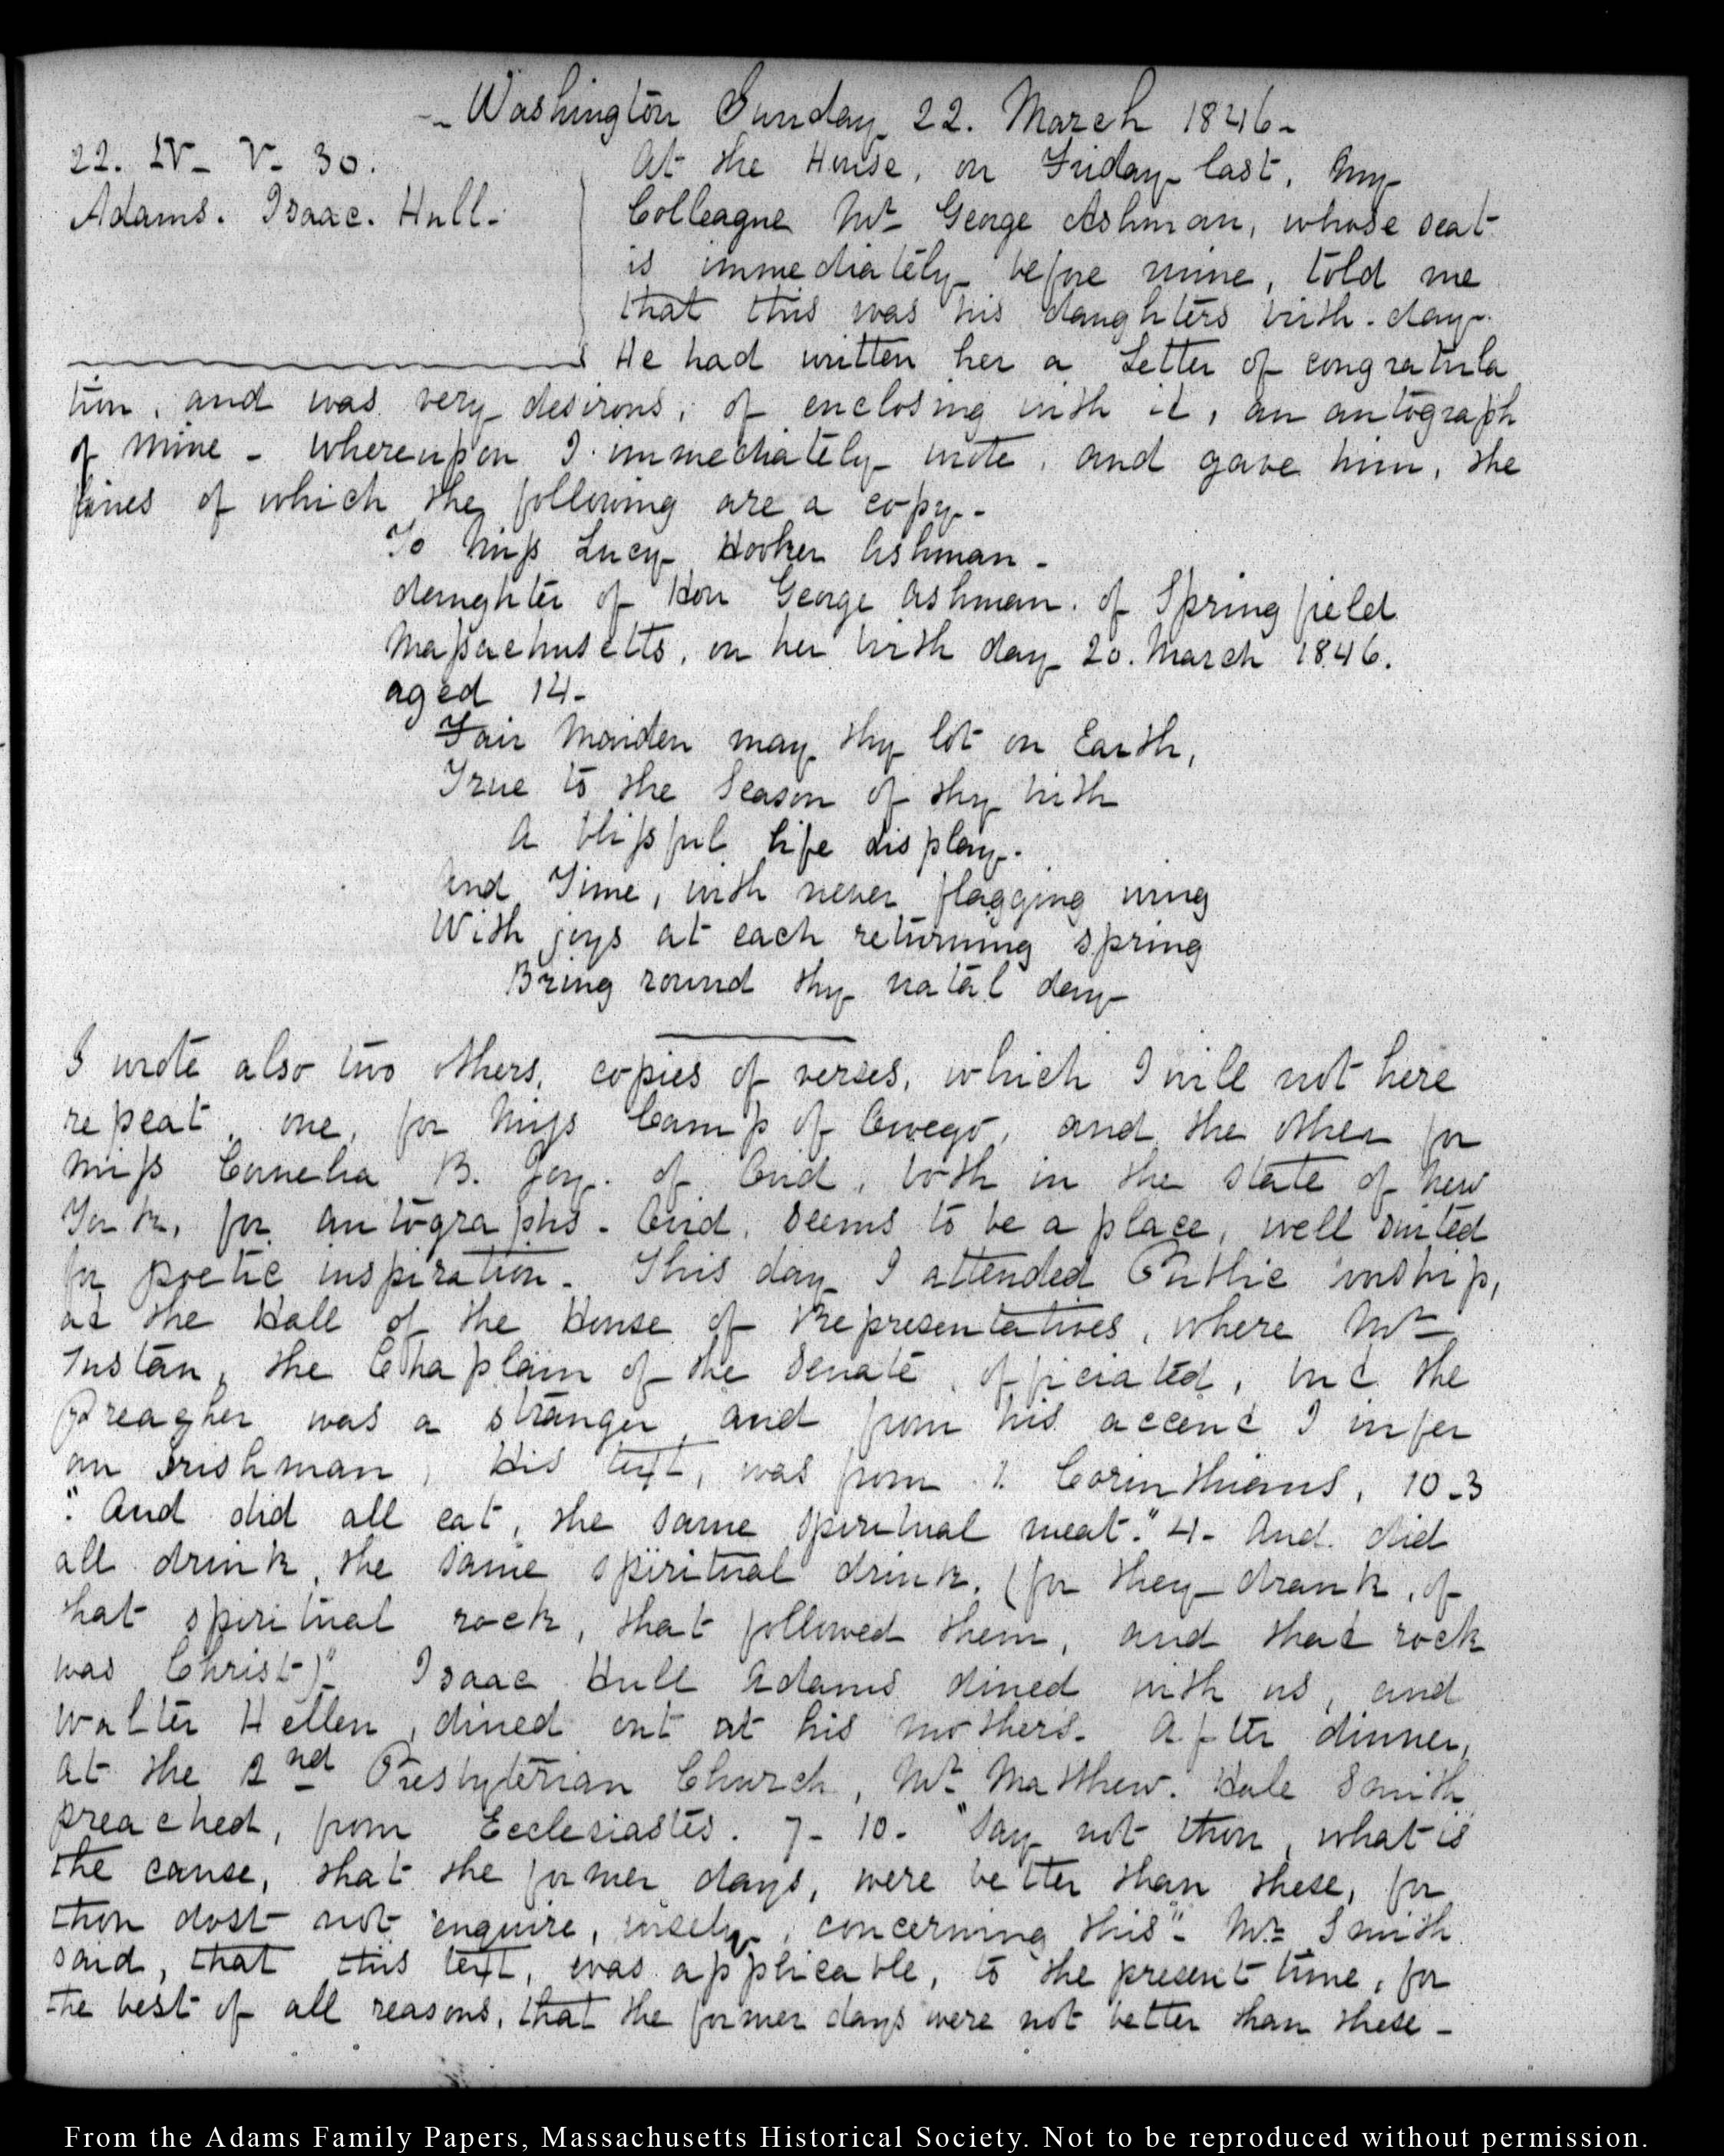 - Washington Sunday 22. March 1846-
22. IV- V- 30.
Adams. Isaac. Hull-
At the House, on Friday last, my
Colleague Mr George Ashman, whose seat
is immediately before mine, told me
that this was his daughters birth-day-
He had written her a Letter of congratula
tion, and was very desirous, of enclosing with it, an autograph
of mine - whereupon I immediately wrote, and gave him, the
lines of which the following are a copy-
To Miss Lucy Hooker Ashman-
daughter of Hon George Ashman. of Springfield
Massachusetts, on her birth day 20. March 1846.
aged 14-
Fair Maiden may thy lot on Earth,
True to the Season of thy birth
A blissful life display-
And Time, with never flagging wing
With joys at each returning spring
Bring round thy natal day-
I wrote also two others, copies of verses, which I will not here
repeat, one, for Miss Camp of Owego, and the other for
Miss Cornelia B. Joy. of Ovid, both in the State of New
York, for autographs- Ovid, seems to be a place, well suited
for poetic inspiration- This day I attended Public worship,
at the Hall of the House of Representatives, where Mr
Tustan, the Chaplain of the Senate, officiated, but the
Preacher was a stranger, and from his accent I infer
an Irishman, His text, was from 1. Corinthians, 10-3
"And did all eat, the same spiritual meat." 4- And did
all drink, the same spiritual drink, (for they drank, of
that spiritual rock, that followed them, and that rock
was Christ)"- Isaac Hull Adams dined with us, and
Walter Hellen, dined out at his mothers- After dinner,
At the 2nd Presbyterian Church, Mr Matthew. Hale Smith
preached, from Ecclesiastes. 7- 10- "Say not thou, what is
the cause, that the former days, were better than these, for
thou dost not enquire, wisely, concerning this"- Mr Smith
said, that this text, was applicable, to the present time, for
the best of all reasons, that the former days were not better than these-
From the Adams Family Papers, Massachusetts Historical Society. Not to be reproduced without permission.